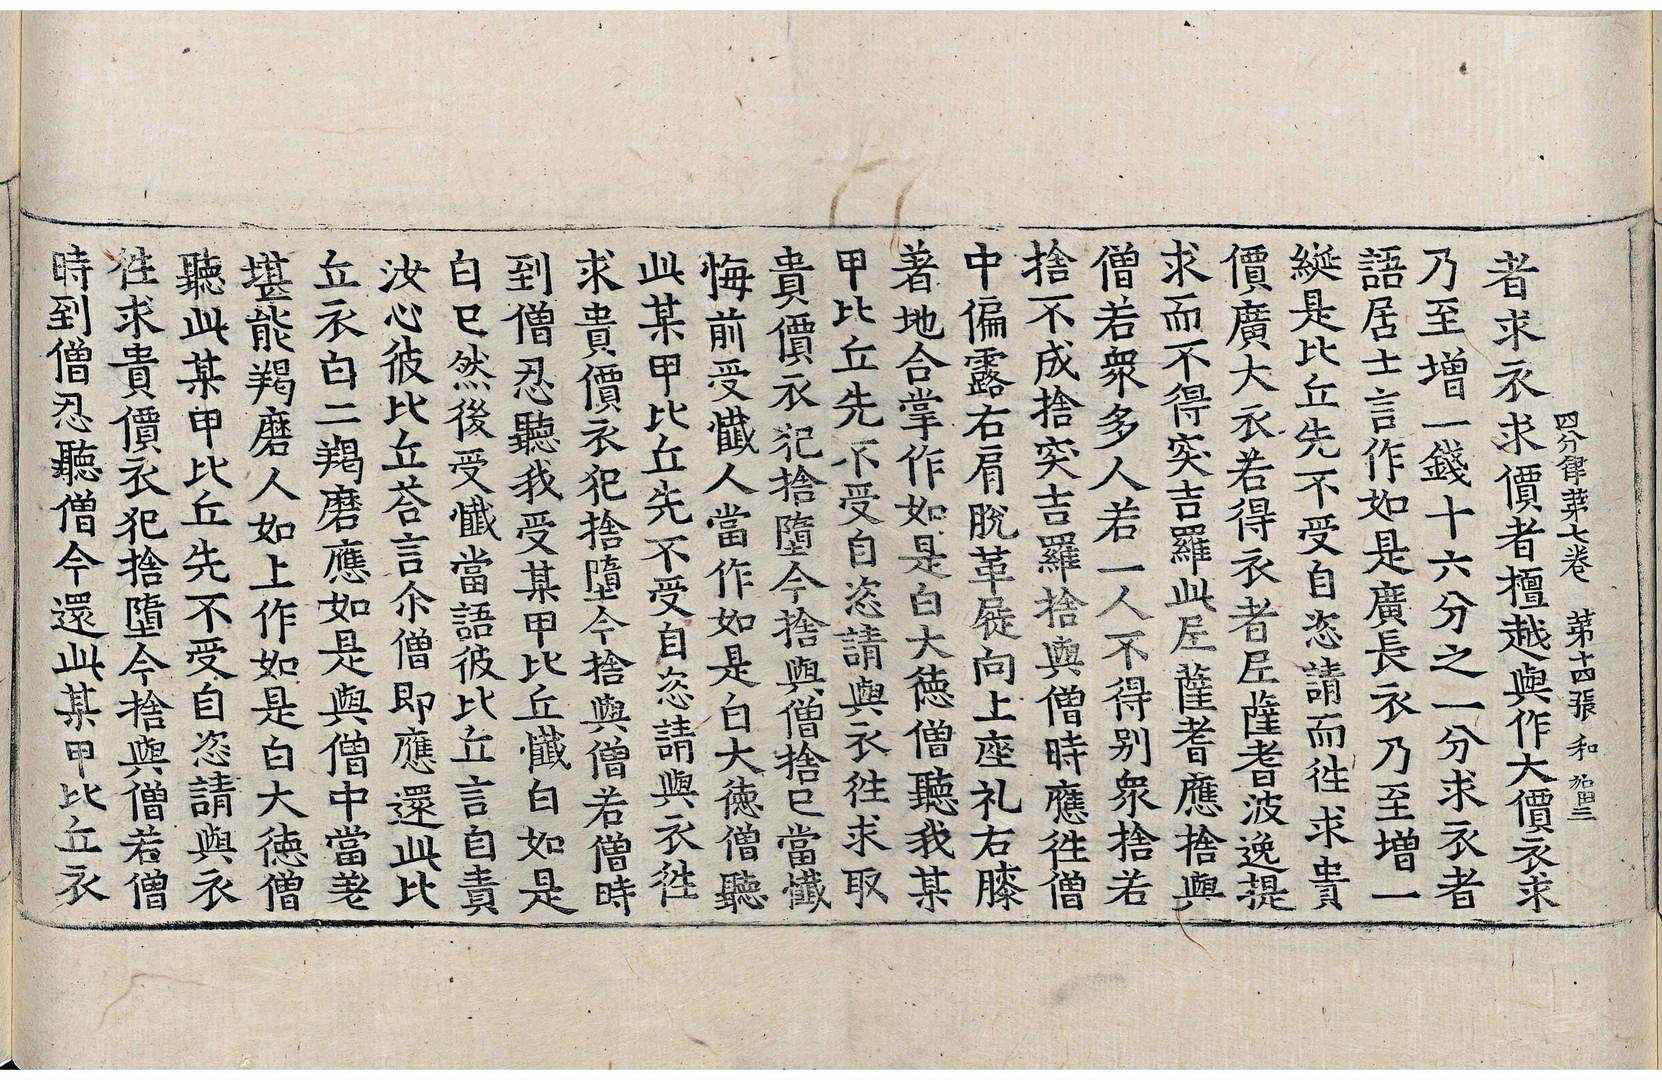 四分律苐七卷 苐十四張 和
者求衣求價者檀越與作大價衣求
乃至增一錢十六分之一分求衣者
語居士言作如是廣長衣乃至增一
綖是比丘先不受自恣請而徃求貴
價廣大衣若得衣者尼薩耆波逸提
求而不得突吉羅此尼薩耆應捨與
僧若衆多人若一人不得別衆捨若
捨不成捨突吉羅捨與僧時應徃僧
中偏露右肩脫革屣向上座礼右膝
著地合掌作如是白大徳僧聽我某
甲比丘先不受自恣請與衣徃求取
貴價衣犯捨墮今捨與僧捨已當懺
悔前受懺人當作如是白大徳僧聽
此某甲比丘先不受自恣請與衣徃
求貴價衣犯捨墮今捨與僧若僧時
到僧忍聽我受某甲比丘懺白如是
白已然後受懺當語彼比丘言自責
汝心彼比丘荅言尒僧即應還此比
丘衣白二羯磨應如是與僧中當差
堪能羯磨人如上作如是白大徳僧
聽此某甲比丘先不受自恣請與衣
徃求貴價衣犯捨墮今捨與僧若僧
時到僧忍聽僧今還此某甲比丘衣